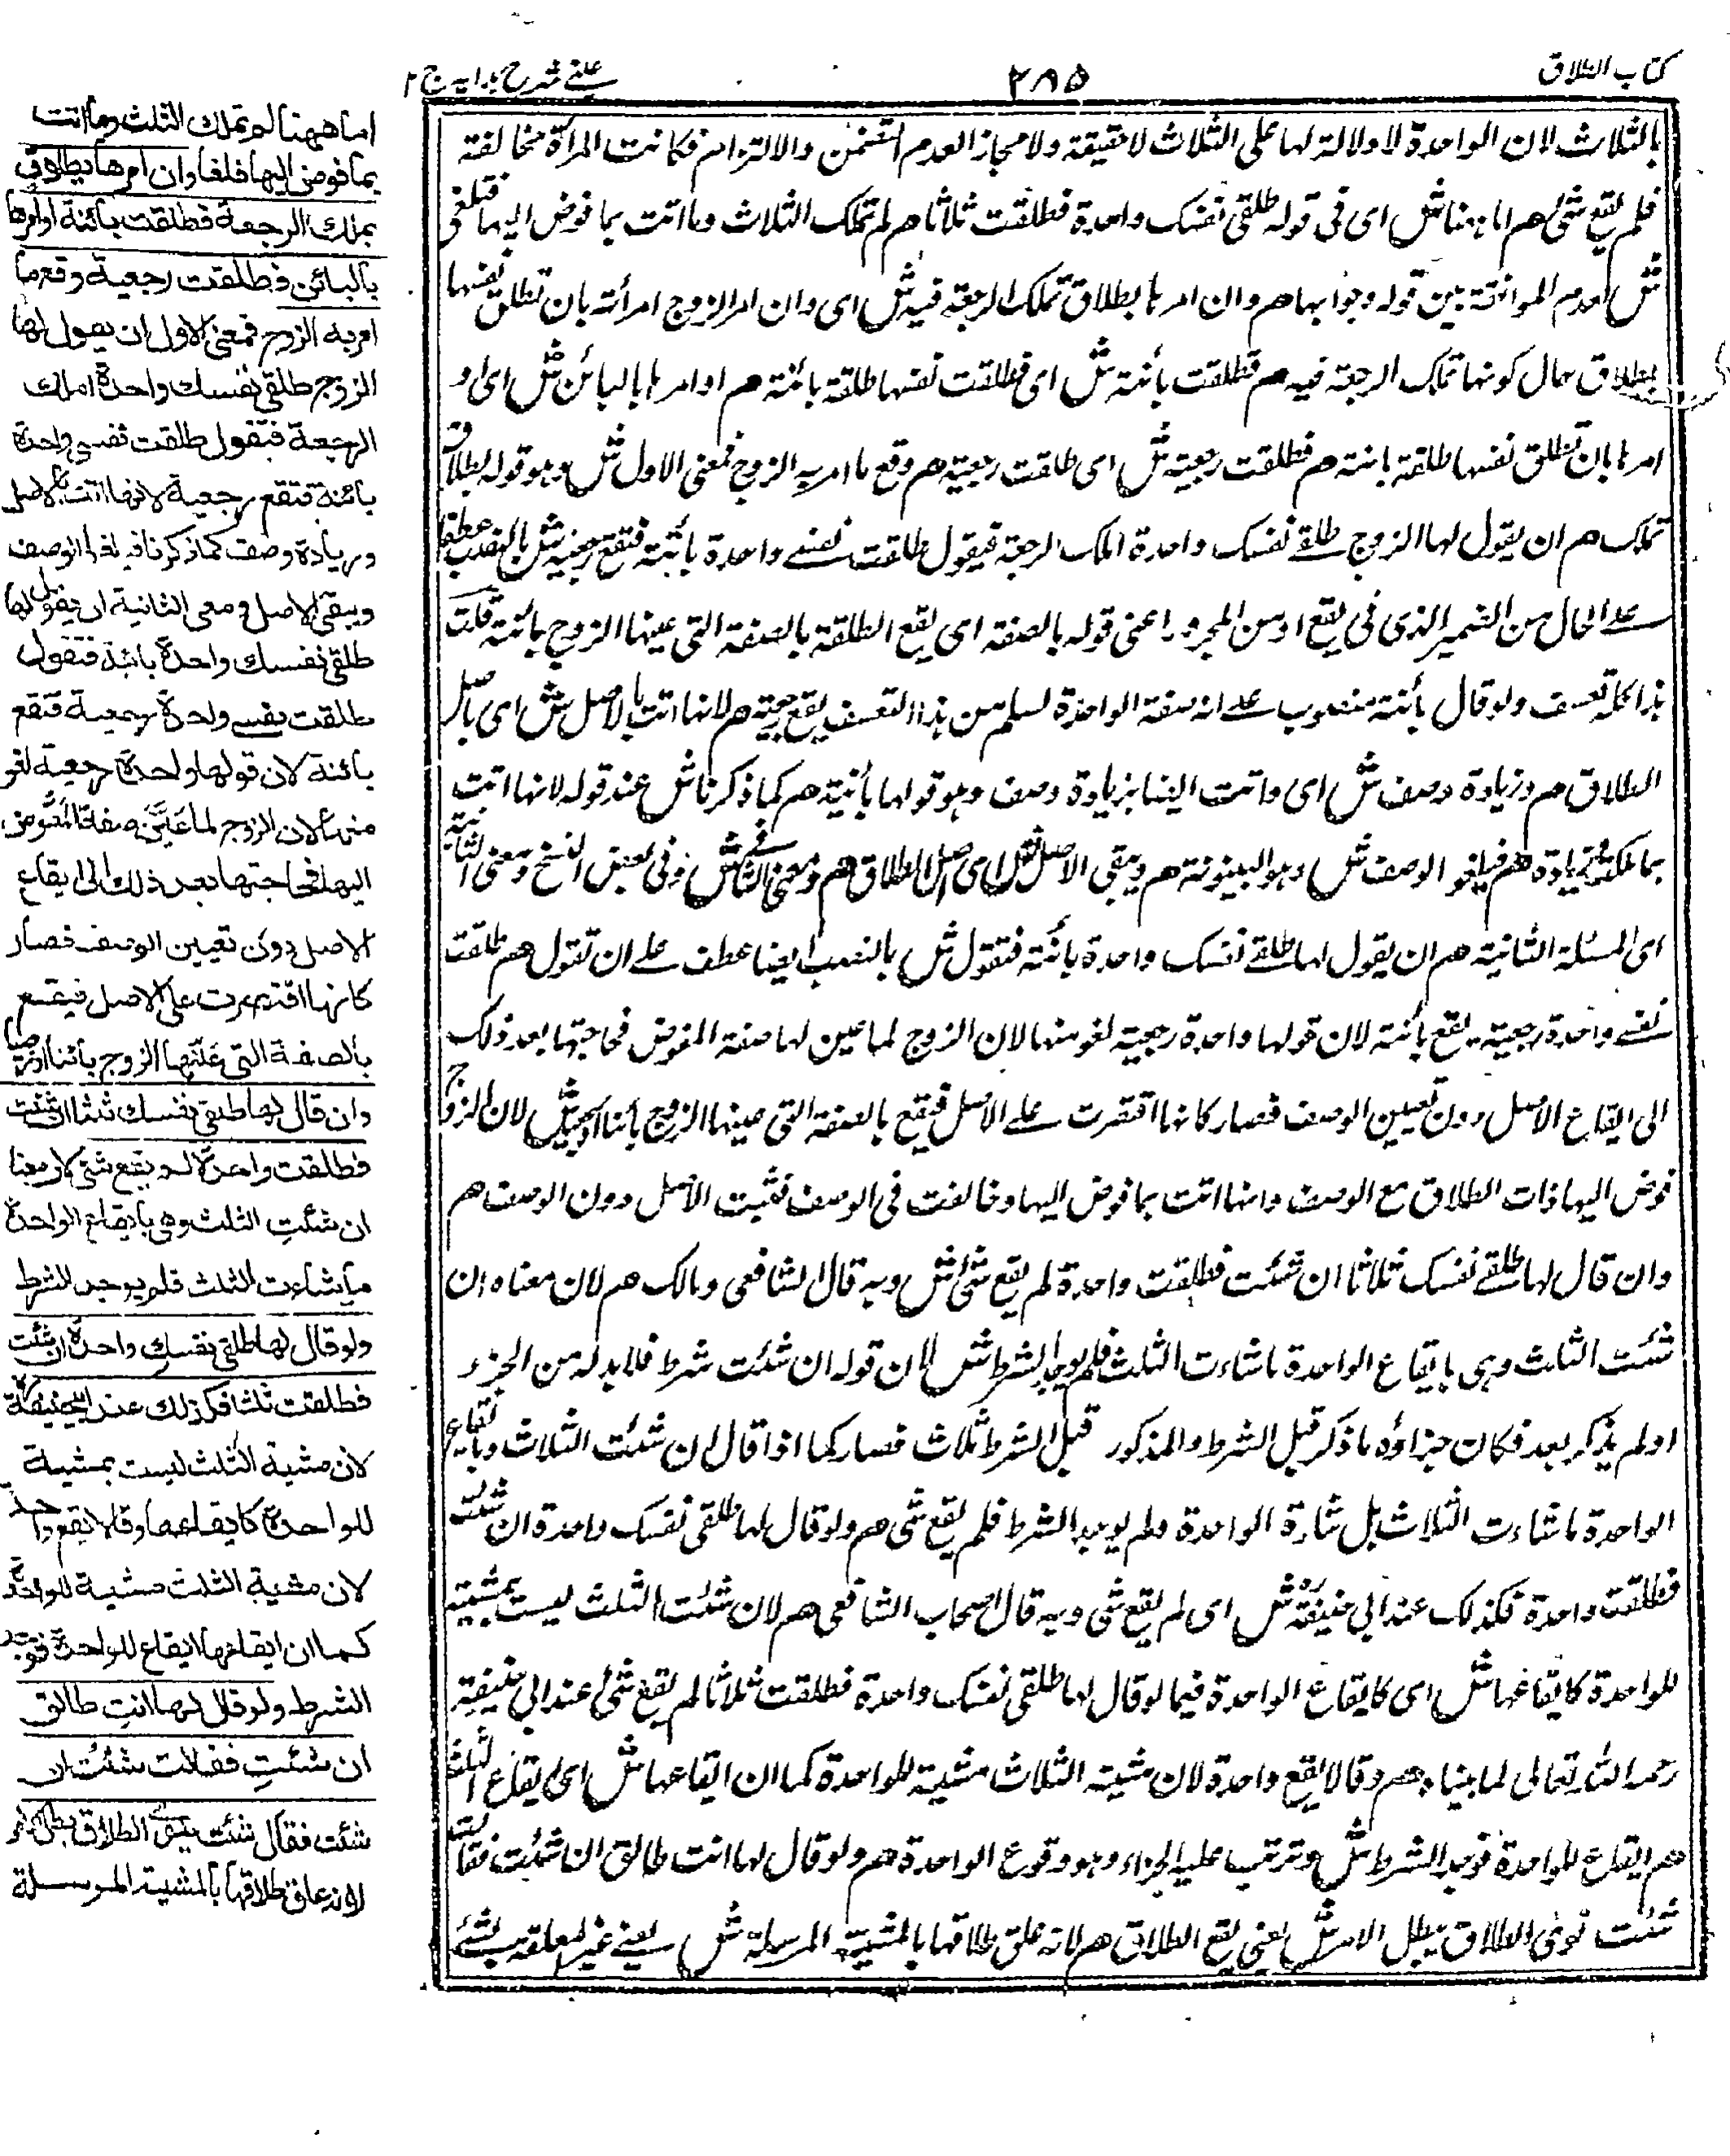 كتاب الطلاق
٢٨٥
عينى شرح هدايه ج ٢
بالثلاث لان الواحدة لا دلالة لها على الثلاث لا حقيقة ولا مجازا لعدم التضمن والالتزام فكانت المرأة مخالفة
فلم يقع شئ هم اما ههنا ش اى فى قوله طلقى نفسك واحدة فطلقت ثلاثا هم لم تملك الثلاث وما اتت بما فوض اليها فتلغى
ش لعدم الموافقة بين قوله وجوابها هم وان امرها بطلاق تملك الرجعة فيه ش اى وان امر الزوج امرأته بان تطلق نفسها
بطلاق حال كونها تملك الرجعة فيه هم فطلقت بائنة ش اى فطلقت نفسها طلقة بائنة هم او امرها بالبائن ش اى او
امرها بان تطلق نفسها طلقة بائنة هم فطلقت رجعية ش اى طلقت رجعية هم وقع ما امر به الزوج فمعنى الاول ش وهو قوله بطلاق
تملك هم ان يقول لها الزوج طلقى نفسك واحدة املك الرجعة فيقول طلقت نفسى واحدة بائنة فتقع رجعية ش بالنصب عطفا
على الحال من الضمير الذى فى يقع او من المجرور اعنى قوله بالصفة اى يقع الطلقة بالصفة التى عينها الزوج بائنة قلت
هذا كله تعسف ولو قال بائنة منصوب على انه صفة الواحدة لسلم من هذا التعسف يقع رجعية هم لانها اتت بالاصل ش اى باصل
الطلاق هم وزيادة وصف ش اى واتت ايضا بزيادة وصف وهو قولها بائنة هم كما ذكرنا ش عند قوله لانها اتت
بما ملكته وزيادة هم فيلغو الوصف ش وهو البينونة هم ويبقى الاصل ش اى اصل الطلاق هم ومعنى الثانى ش وفى بعض النسخ ومعنى الثانية
اى المسئلة الثانية هم ان يقول لها طلقى نفسك واحدة بائنة فتقول ش بالنصب ايضا عطف على ان تقول هم طلقت
نفسى واحدة رجعية يقع بائنة لان قولها واحدة رجعية لغو منها لان الزوج لما عين لها صفة المفوض فحاجتها بعد ذلك
الى ايقاع الاصل دون تعيين الوصف فصار كانها اقتصرت على الاصل فيقع بالصفة التى عينها الزوج بائنا او رجعيا ش لان الزوج
فوض اليها ذات الطلاق مع الوصف وانها اتت بما فوض اليها وخالفت فى الوصف فثبت الاصل دون الوصف هم
وان قال لها طلقى نفسك ثلاثا ان شئت فطلقت واحدة لم يقع شئ ش وبه قال الشافعى ومالك هم لان معناه ان
شئت الثلث وهى بايقاع الواحدة ما شاءت الثلث فلم يوجد الشرط ش لان قوله ان شئت شرط فلا بد له من الجزء
اولم يذكر بعد فكان جزاؤه ما ذكر قبل الشرط والمذكور قبل الشرط ثلاث فصار كما اذا قال ان شئت الثلاث وبايقاع
الواحدة ما شاءت الثلاث بل شاءة الواحدة ولم يوجد الشرط فلم يقع شئ هم ولو قال لها طلقى نفسك واحدة ان شئت
فطلقت واحدة فكذلك عند ابى حنيفة ش اى لم يقع شئ وبه قال اصحاب الشافعى هم لان شئت الثلث ليست بمشيئة
للواحدة كايقاعها ش اى كايقاع الواحدة فيما لو قال لها طلقى نفسك واحدة فطلقت ثلاثا لم يقع شئ عند ابى حنيفة
رحمه الله تعالى لما بيناه هم وقالا يقع واحدة لان مشيئة الثلاث مشيئة للواحدة كما ان ايقاعها ش اى ايقاع الثلث
هم ايقاع للواحدة فوجد الشرط ش وترتب عليه الجزاء وهو وقوع الواحدة هم ولو قال لها انت طالق ان شئت فقالت
شئت نوى الطلاق بطل الامر ش يعنى يقع الطلاق هم لانه علق طلاقها بالمشيئة المرسلة ش يعنى غير المعلقة بشئ
اما ههنا لم تملك الثلث وما اتت
بما فوض اليها فلغا وان امرها بطلاق
يملك الرجعة فطلقت بائنة او امرها
بالبائن فطلقت رجعية وقع ما
امر به الزوج فمعنى الاول ان يقول لها
الزوج طلقى نفسك واحدة املك
الرجعة فتقول طلقت نفسى واحدة
بائنة فتقع رجعية لانها اتت بالاصل
وزيادة وصف كما ذكرنا فيلغو الوصف
ويبقى الاصل ومعنى الثانية ان يقول لها
طلقى نفسك واحدة بائنة فتقول
طلقت نفسى واحدة رجعية فتقع
بائنة لان قولها واحدة رجعية لغو
منها لان الزوج لما عَيَّن صفة المفوض
اليها فحاجتها بعد ذلك الى ايقاع
الاصل دون تعيين الوصف فصار
كانها اقتصرت على الاصل فيقع
بالصفة التى عيّنها الزوج بائنا او رجعيا
وان قال لها طلقى نفسك ثلثا ان شئت
فطلقت واحدة لم يقع شئ لان معناه
ان شئتِ الثلث وهى بايقاع الواحدة
ما شاءت الثلث فلم يوجد الشرط
ولو قال لها طلقى نفسك واحدة ان شئت
فطلقت ثلثا فكذلك عند ابى حنيفة
لان مشية الثلث ليست بمشية
للواحدة كايقاعها وقالا يقع واحدة
لان مشية الثلث مشية للواحدة
كما ان ايقاعها ايقاع للواحدة فوجد
الشرط ولو قال لها انتِ طالق
ان شئتِ فقالت شئتُ ان
شئت فقال شئت ينوى الطلاق بطل الامر
لانه علق طلاقها بالمشية المرسلة